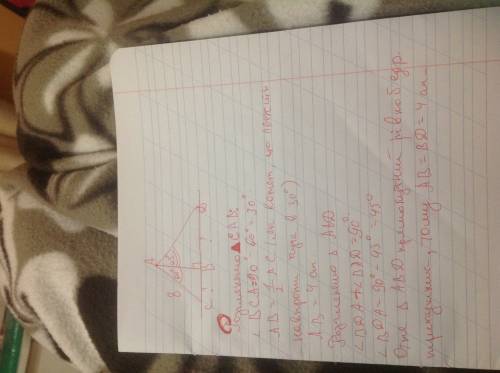 A
8
60° 45°
C
B
D
Розглянемо △CAB:
∠BCA=90°-60°=30°
AB = 1/2 AC (як катет, що лежить
навпроти кута в 30°)
AB = 4 см
Розглянемо △ ABD
∠BDA + ∠BAD = 90°
∠BDA = 90° - 45° = 45°
Отже △ ABD прямокутний рівнобедр.
трикутник, тому AB = BD = 4 см